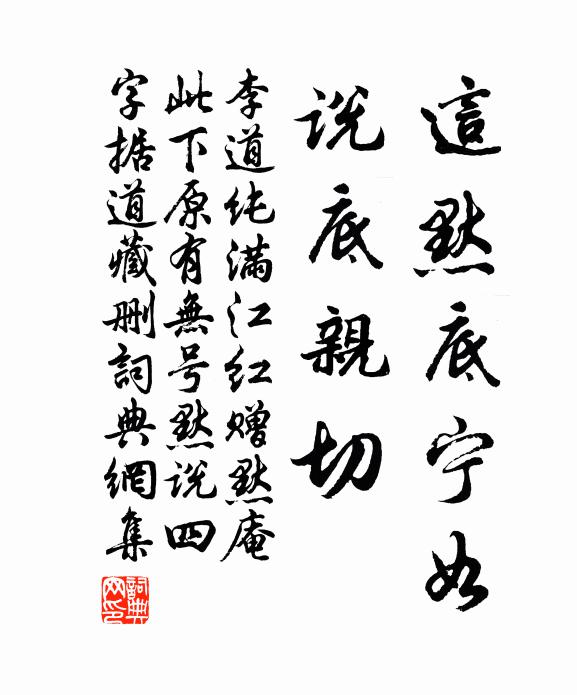 這默底宁如
说底親切
李道纯满江红赠默庵
此下原有無号默说四
字据道藏删詞典網集
詞典网印